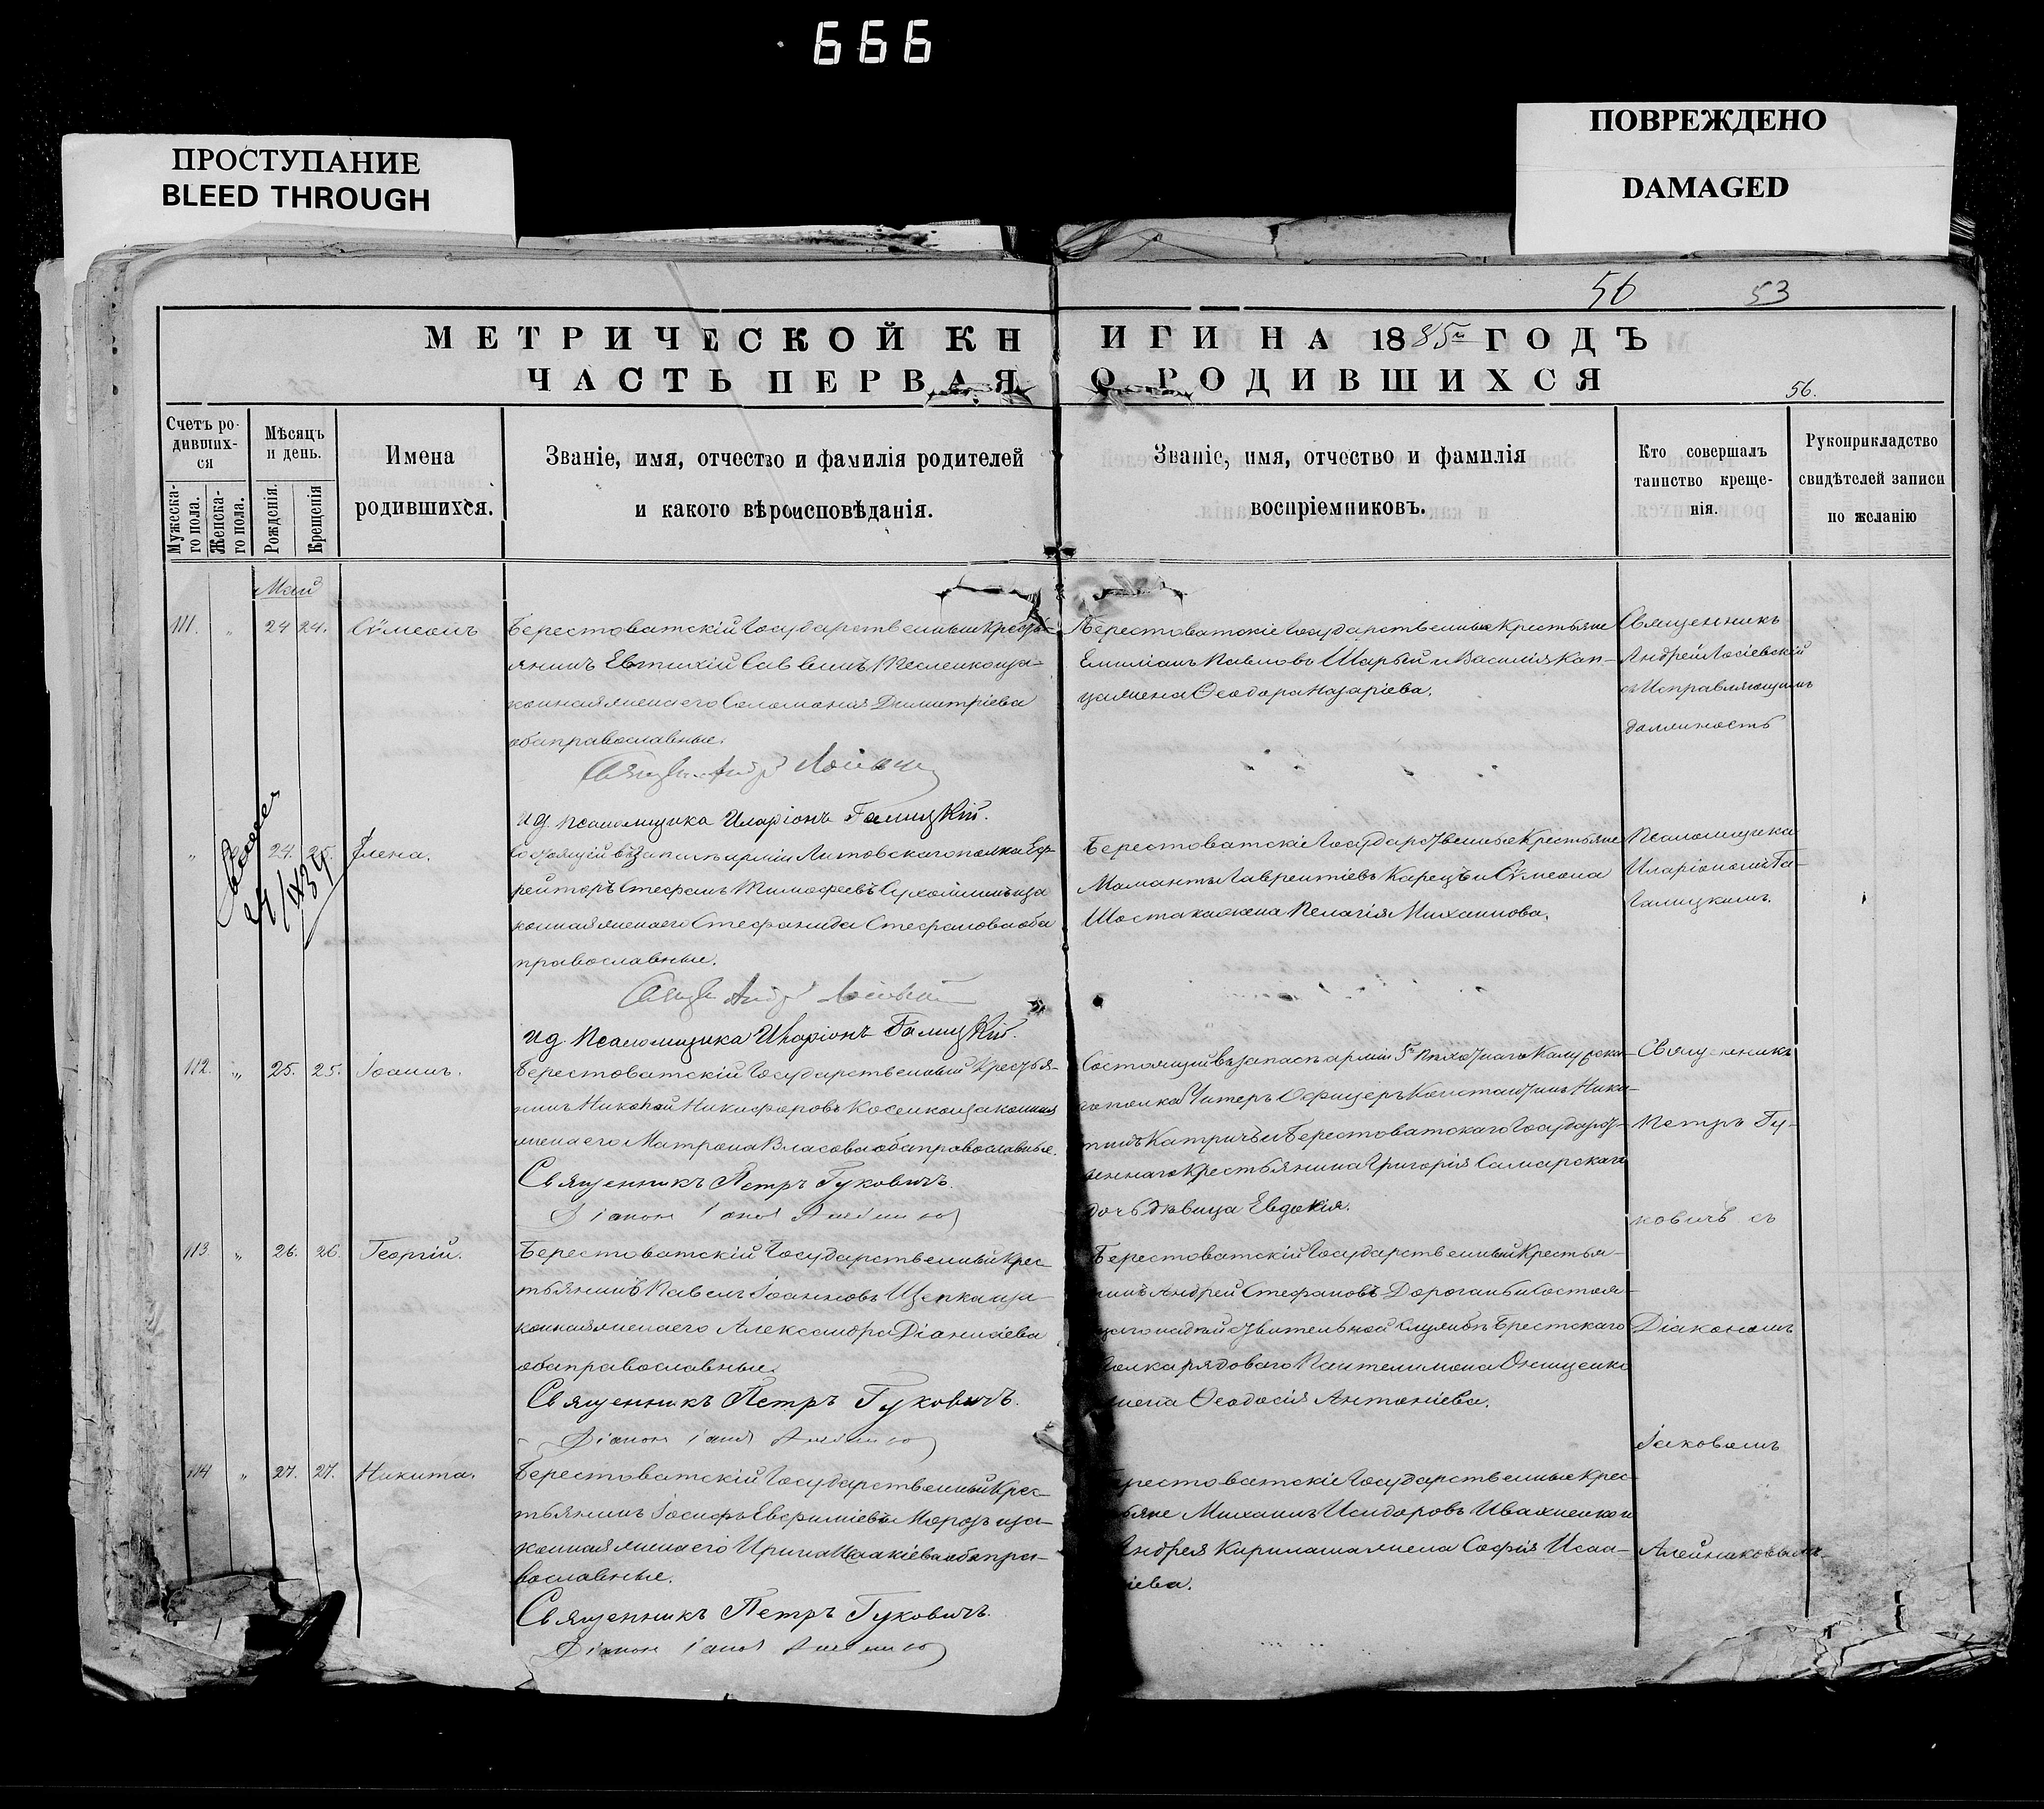 666
ПРОСТУПАНИЕ
BLEED THROUGH
ПОВРЕЖДЕНО
DAMAGED
56 53
МЕТРИЧЕСКОЙ КНИГИ НА 1885 ГОДЪ
ЧАСТЬ ПЕРВАЯ О РОДИВШИХСЯ
56.
Счетъ ро-
дивших-
ся
Мужеска-
го пола.
Женска-
го пола.
Мѣсяцъ
и день.
Рожденія.
Крещенія
Имена
родившихся.
Званіе, имя, отчество и фамилія родителей
и какого вѣроисповѣданія.
Званіе, имя, отчество и фамилія
воспріемниковъ.
Кто совершалъ
таинство креще-
нія.
Рукоприкладство
свидѣтелей записи
по желанію
Май
111. " 24 24. Сѵмеонъ
Берестоватскій Государственный Кресть-
янинъ Евтихій Саввинъ и за-
конная жена его Соломонія Димитріева
оба православные.
Берестоватскіе Государственные Крестьяне
Емиліанъ Павловъ Шарый и Василія Кап-
жена Ѳеодора Назаріева.
Священникъ
Андрей Лосіевскій
съ Исправляющимъ
должность
ид. псаломщика Иларіонъ Галицкій.
" 24. 25. Елена.
1934
Состоящій въ запасѣ арміи Литовскаго полка Еф-
рейторъ Стефанъ Тимофеевъ Сухолинъ и за
конная жена его Стефанида Стефанова оба
православные.
Берестоватскіе Государственные Крестьяне
Мамантъ Лаврентіевъ Карецъ и Сѵмеона
Шостака жена Пелагія Михаилова.
Псаломщика
Иларіономъ Га-
лицкимъ.
ид. Псаломщика Иларіонъ Галицкій.
112. " 25. 25. Іоаннъ.
Берестоватскій Государственный Крестья-
нинъ Николай Никифоровъ Косенко и законная
жена его Матрона Власова оба православные.
Священникъ Петръ Гуковичъ.
Состоящій въ запасѣ арміи 5го Пѣхотнаго Калужска-
го полка Унтеръ Офицеръ Константинъ Ники-
тинъ Катричъ и Берестоватскаго Государст-
веннаго Крестьянина Григорія Самарскаго
дочь дѣвица Евдокія.
Священникъ
Петръ Гу-
ковичъ съ
113 " 26. 26. Георгій.
Берестоватскій Государственный Крес-
тьянинъ Павелъ Іоанновъ Щепка и за-
конная жена его Александра Діонисіева
оба православные.
Священникъ Петръ Гуковичъ.
Берестоватскій Государственный Крестья-
нинъ Андрей Стефановъ Дорогань и Состоя-
щаго на дѣйствительной службѣ Брестскаго
полка рядоваго Пантелимона Онищенко
жена Ѳеодосія Антоніева.
Діакономъ
Іаковомъ
114 " 27. 27. Никита.
Берестоватскій Государственный Крес-
тьянинъ Іосифъ Евфиміевъ Морозъ и за-
конная жена его Ирина Исаакіева оба пра-
вославные.
Священникъ Петръ Гуковичъ.
рестоватскіе Государственные Крес-
тьяне Михаилъ Исидоровъ Ивахненко и
Андрея Кирилаша жена Софія Исаа-
кіева.
Алейниковымъ.